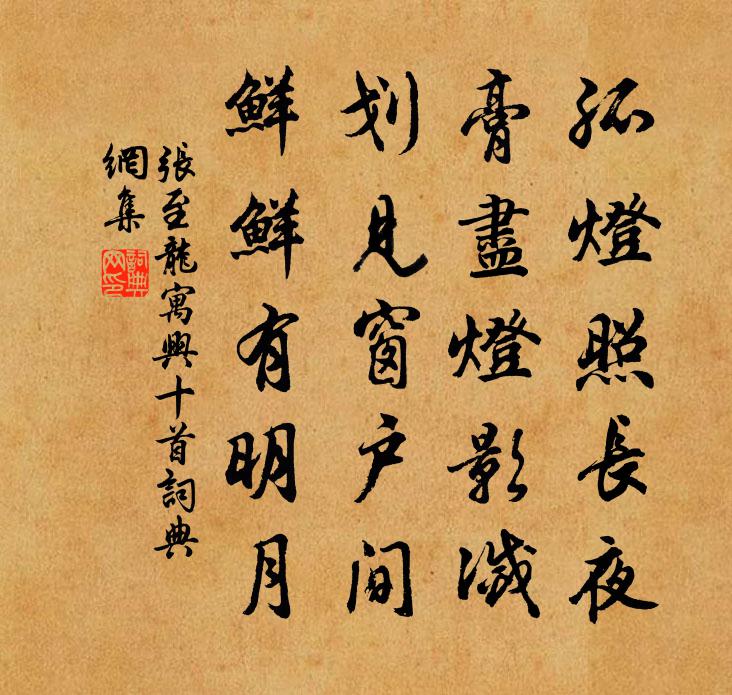 孤燈照長夜
膏盡燈影滅
划見窗户间
鮮鮮有明月
張至龍寓興十首詞典
網集
詞典
网印